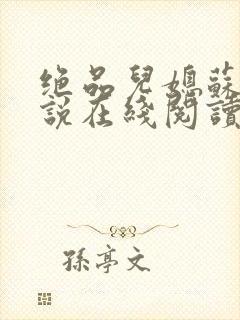 绝品兒媳蘇
說在綫閱讀
孫亭文